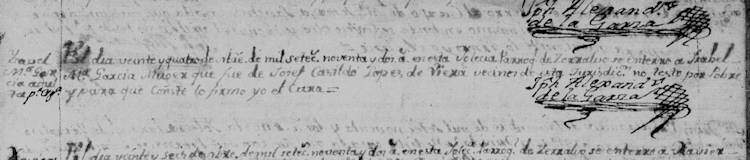 Jph Alexandro
de la Garza
Ysabel
Ma Gar
cia
El dia veinte y quatro de Nre. de mil setec. noventa y dos a. en esta Yglecia Parroq. de Zerralvo se enterro a Ysabel
Ma Garcia Muger que fue de Josef Casildo Lopes, de Viexa vecinos de esta Jurisdic. no testo por Pobre
y para que Coñste lo firmo yo el Cura =
Jph Alexandro
de la Garza
El dia veinte y seis de Nbre. de mil setec. noventa y dos a. en esta Yglec. Parroq. de Zerralvo se enterro a Xavier